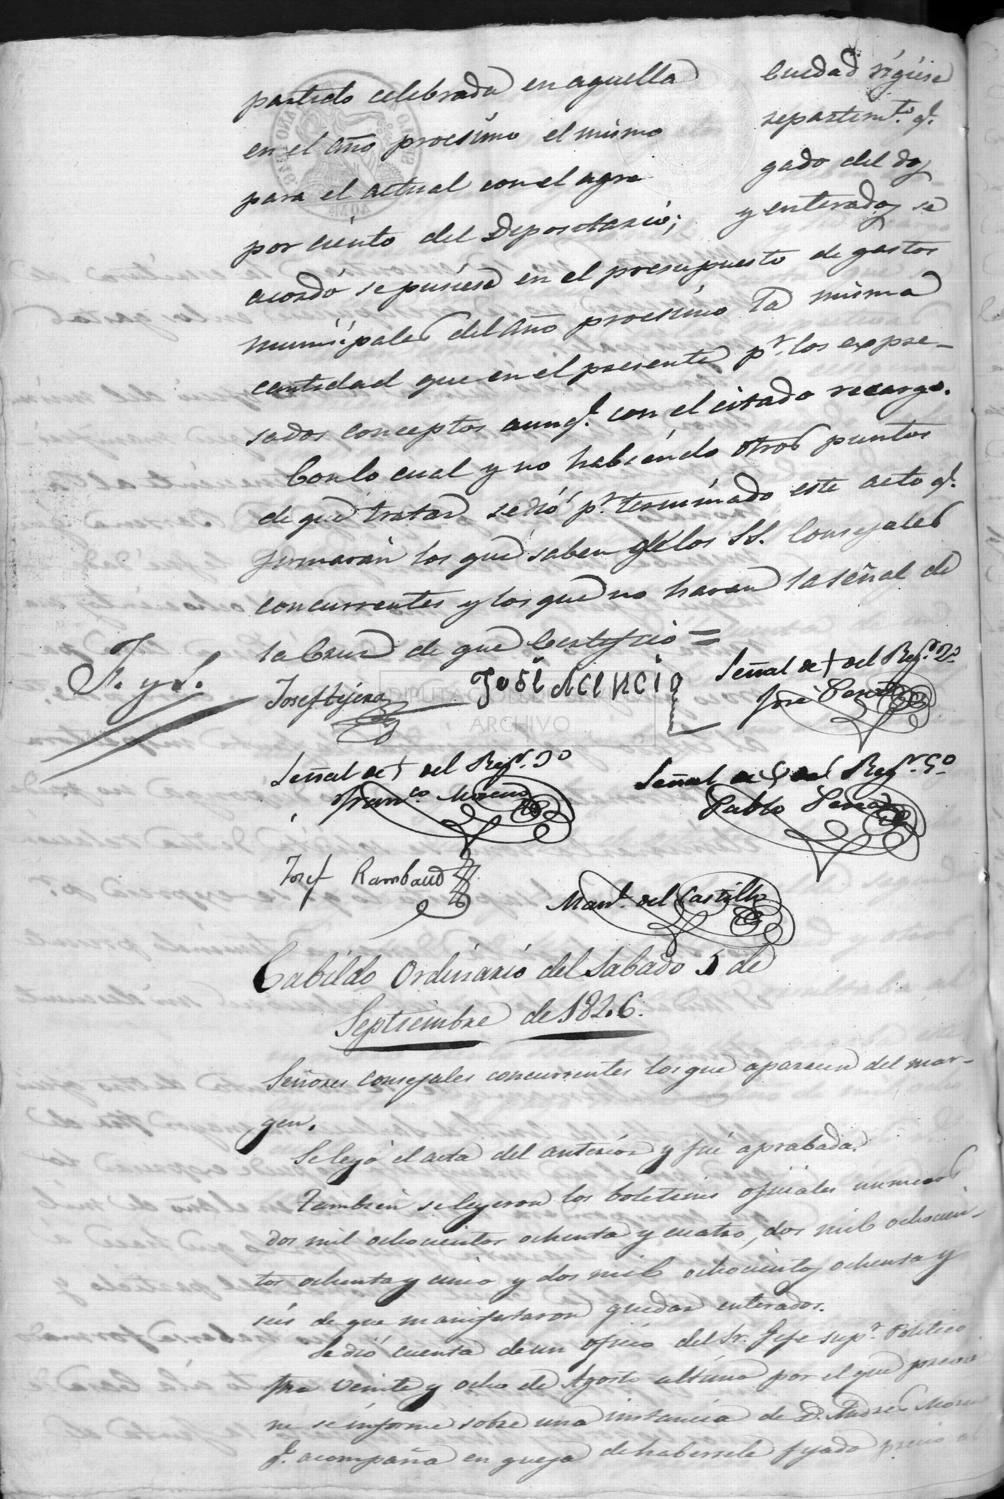 partido celebrada en aquella Ciudad rigiese
en el año procsimo el mismo repartimto. q.
para el actual con el agregado del dos
por ciento del Depositario; y enterados se
acordó se pusiese en el presupuesto de gastos
municipales del año procsimo la misma
cantidad que en el presente pr. los expre-
sados conceptos aunq. con el citado recargo.
Con lo cual y no habiendo otros puntos
de que tratar se dió pr. terminado este acto q.
firmarán los que saben de los SS. Consejales
concurrentes y los que no haran la señal de
la Cruz de que Certifico =
F. y S.
Josef Tijera
José Asencio
Señal de + del Regr. 2o
José
DIPUTACIÓN DE
ARCHIVO
Señal de + del Regr. 3o
Franco Moreno
Señal de + del Regr. 5o
Pablo
Josef Rambaud
Manl. del Castillo
Cabildo Ordinario del Sabado 5 de
Septiembre de 1826.
Señores Consejales concurrentes los que aparecen del mar-
gen.
Se leyó el acta del anterior y fué aprobada.
Tambien se leyeron los boletines oficiales numeros
dos mil ochocientos ochenta y cuatro, dos mil ochocien-
tos ochenta y cinco y dos mil ochocientos ochenta y
seis de que manifestaron quedar enterados.
Se dió cuenta de un oficio del Sr. Jefe supr. Politico
fha veinte y ocho de Agosto ultimo por el que previe
ne se informe sobre una instancia de D. Andres Moreno
q. acompaña en queja de habersele fijado precio al